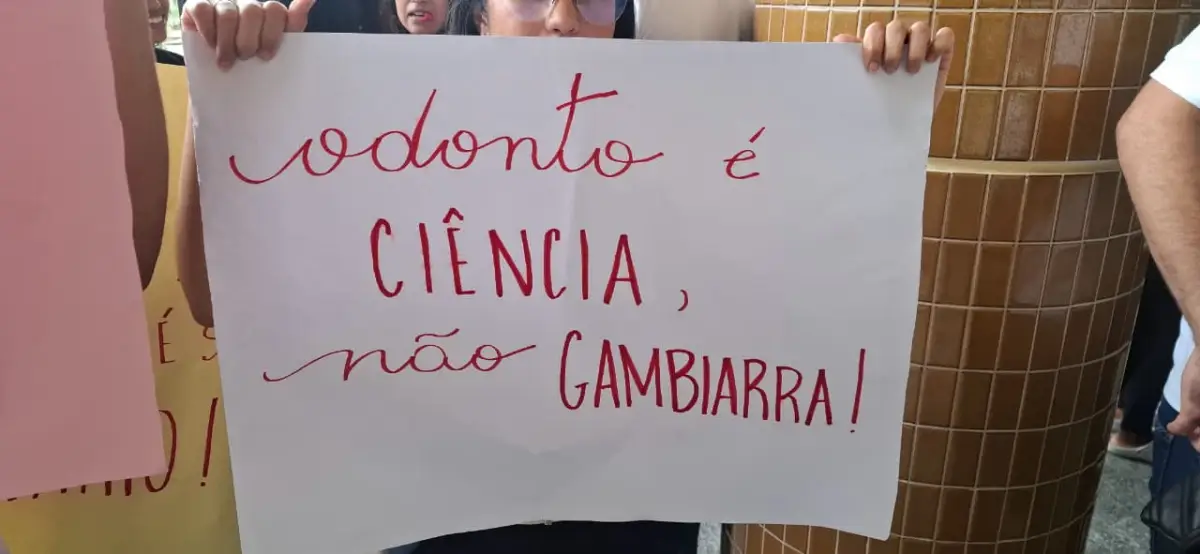 odonto é
CIÊNCIA,
não GAMBIARRA!
É